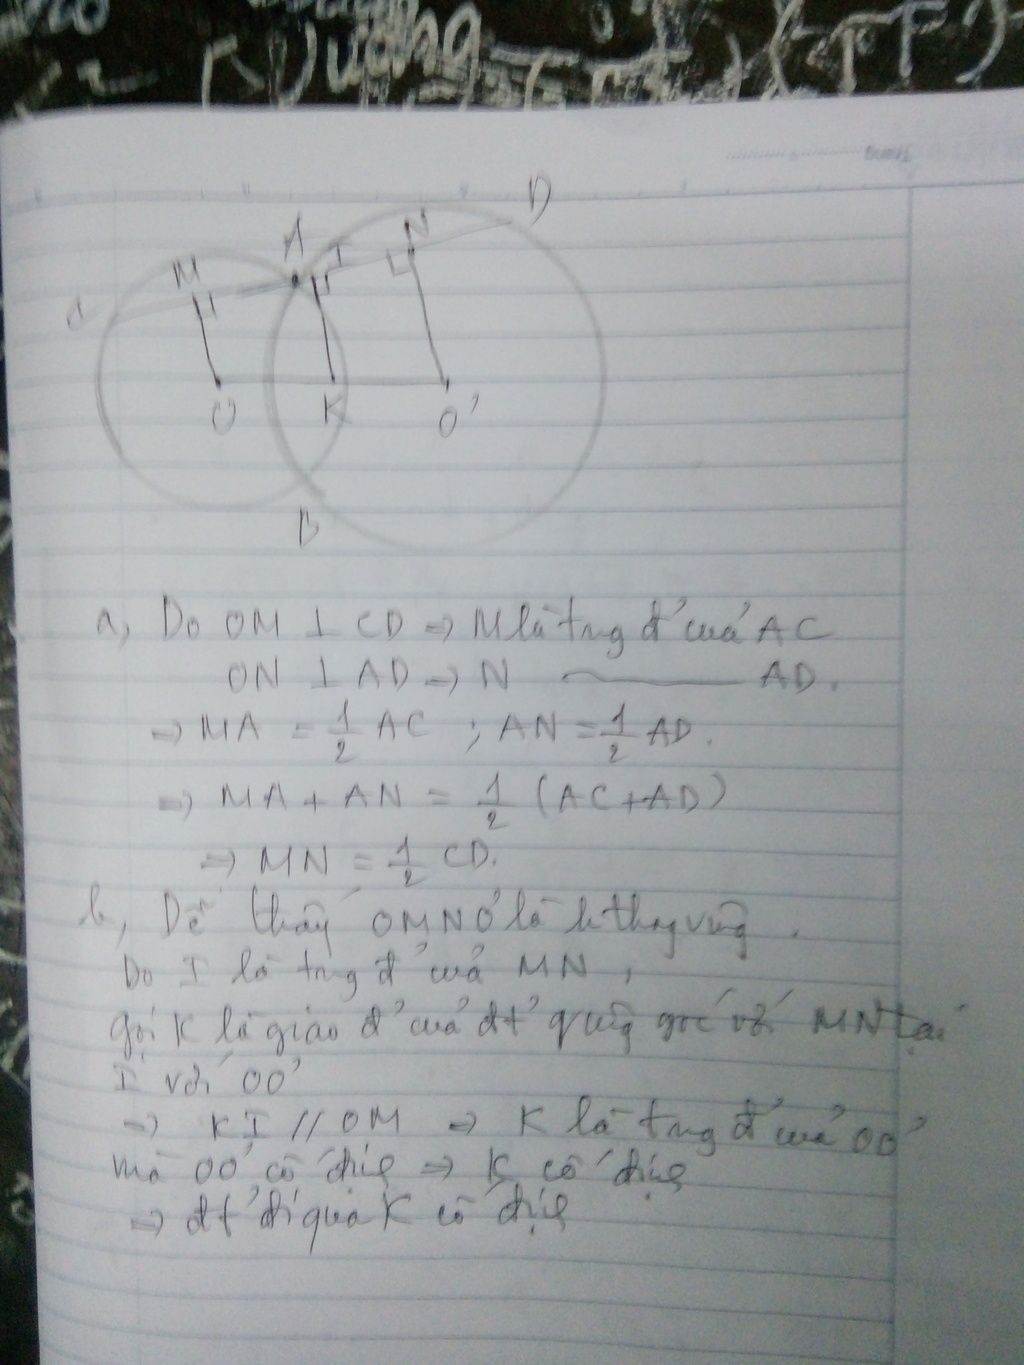 Dương
A
N
D
M
I
C
O
K
O'
B
a, Do OM ⊥ CD => M là tng đ' của AC
ON ⊥ AD => N ——— AD.
=> MA = 1/2 AC ; AN = 1/2 AD.
=> MA + AN = 1/2 (AC + AD)
=> MN = 1/2 CD.
b, Dễ thấy OMNO' là h thg vuông.
Do I là tng đ' của MN,
gọi K là giao đ' của đt' vuông góc với MN tại
I với OO'
=> KI // OM => K là tng đ' của OO'
mà OO' cố định => K cố định
=> đt' đi qua K cố định